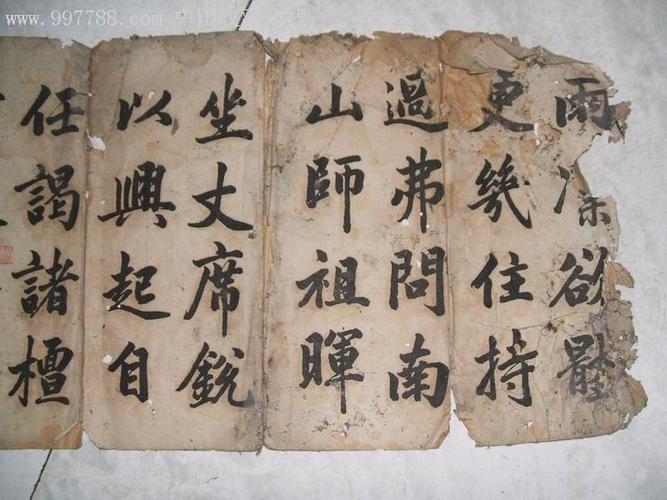 www.997788.com 中国
雨欲
更幾住持
過弗問南
山師祖暉
坐丈席銳
以興起自
任謁諸檀